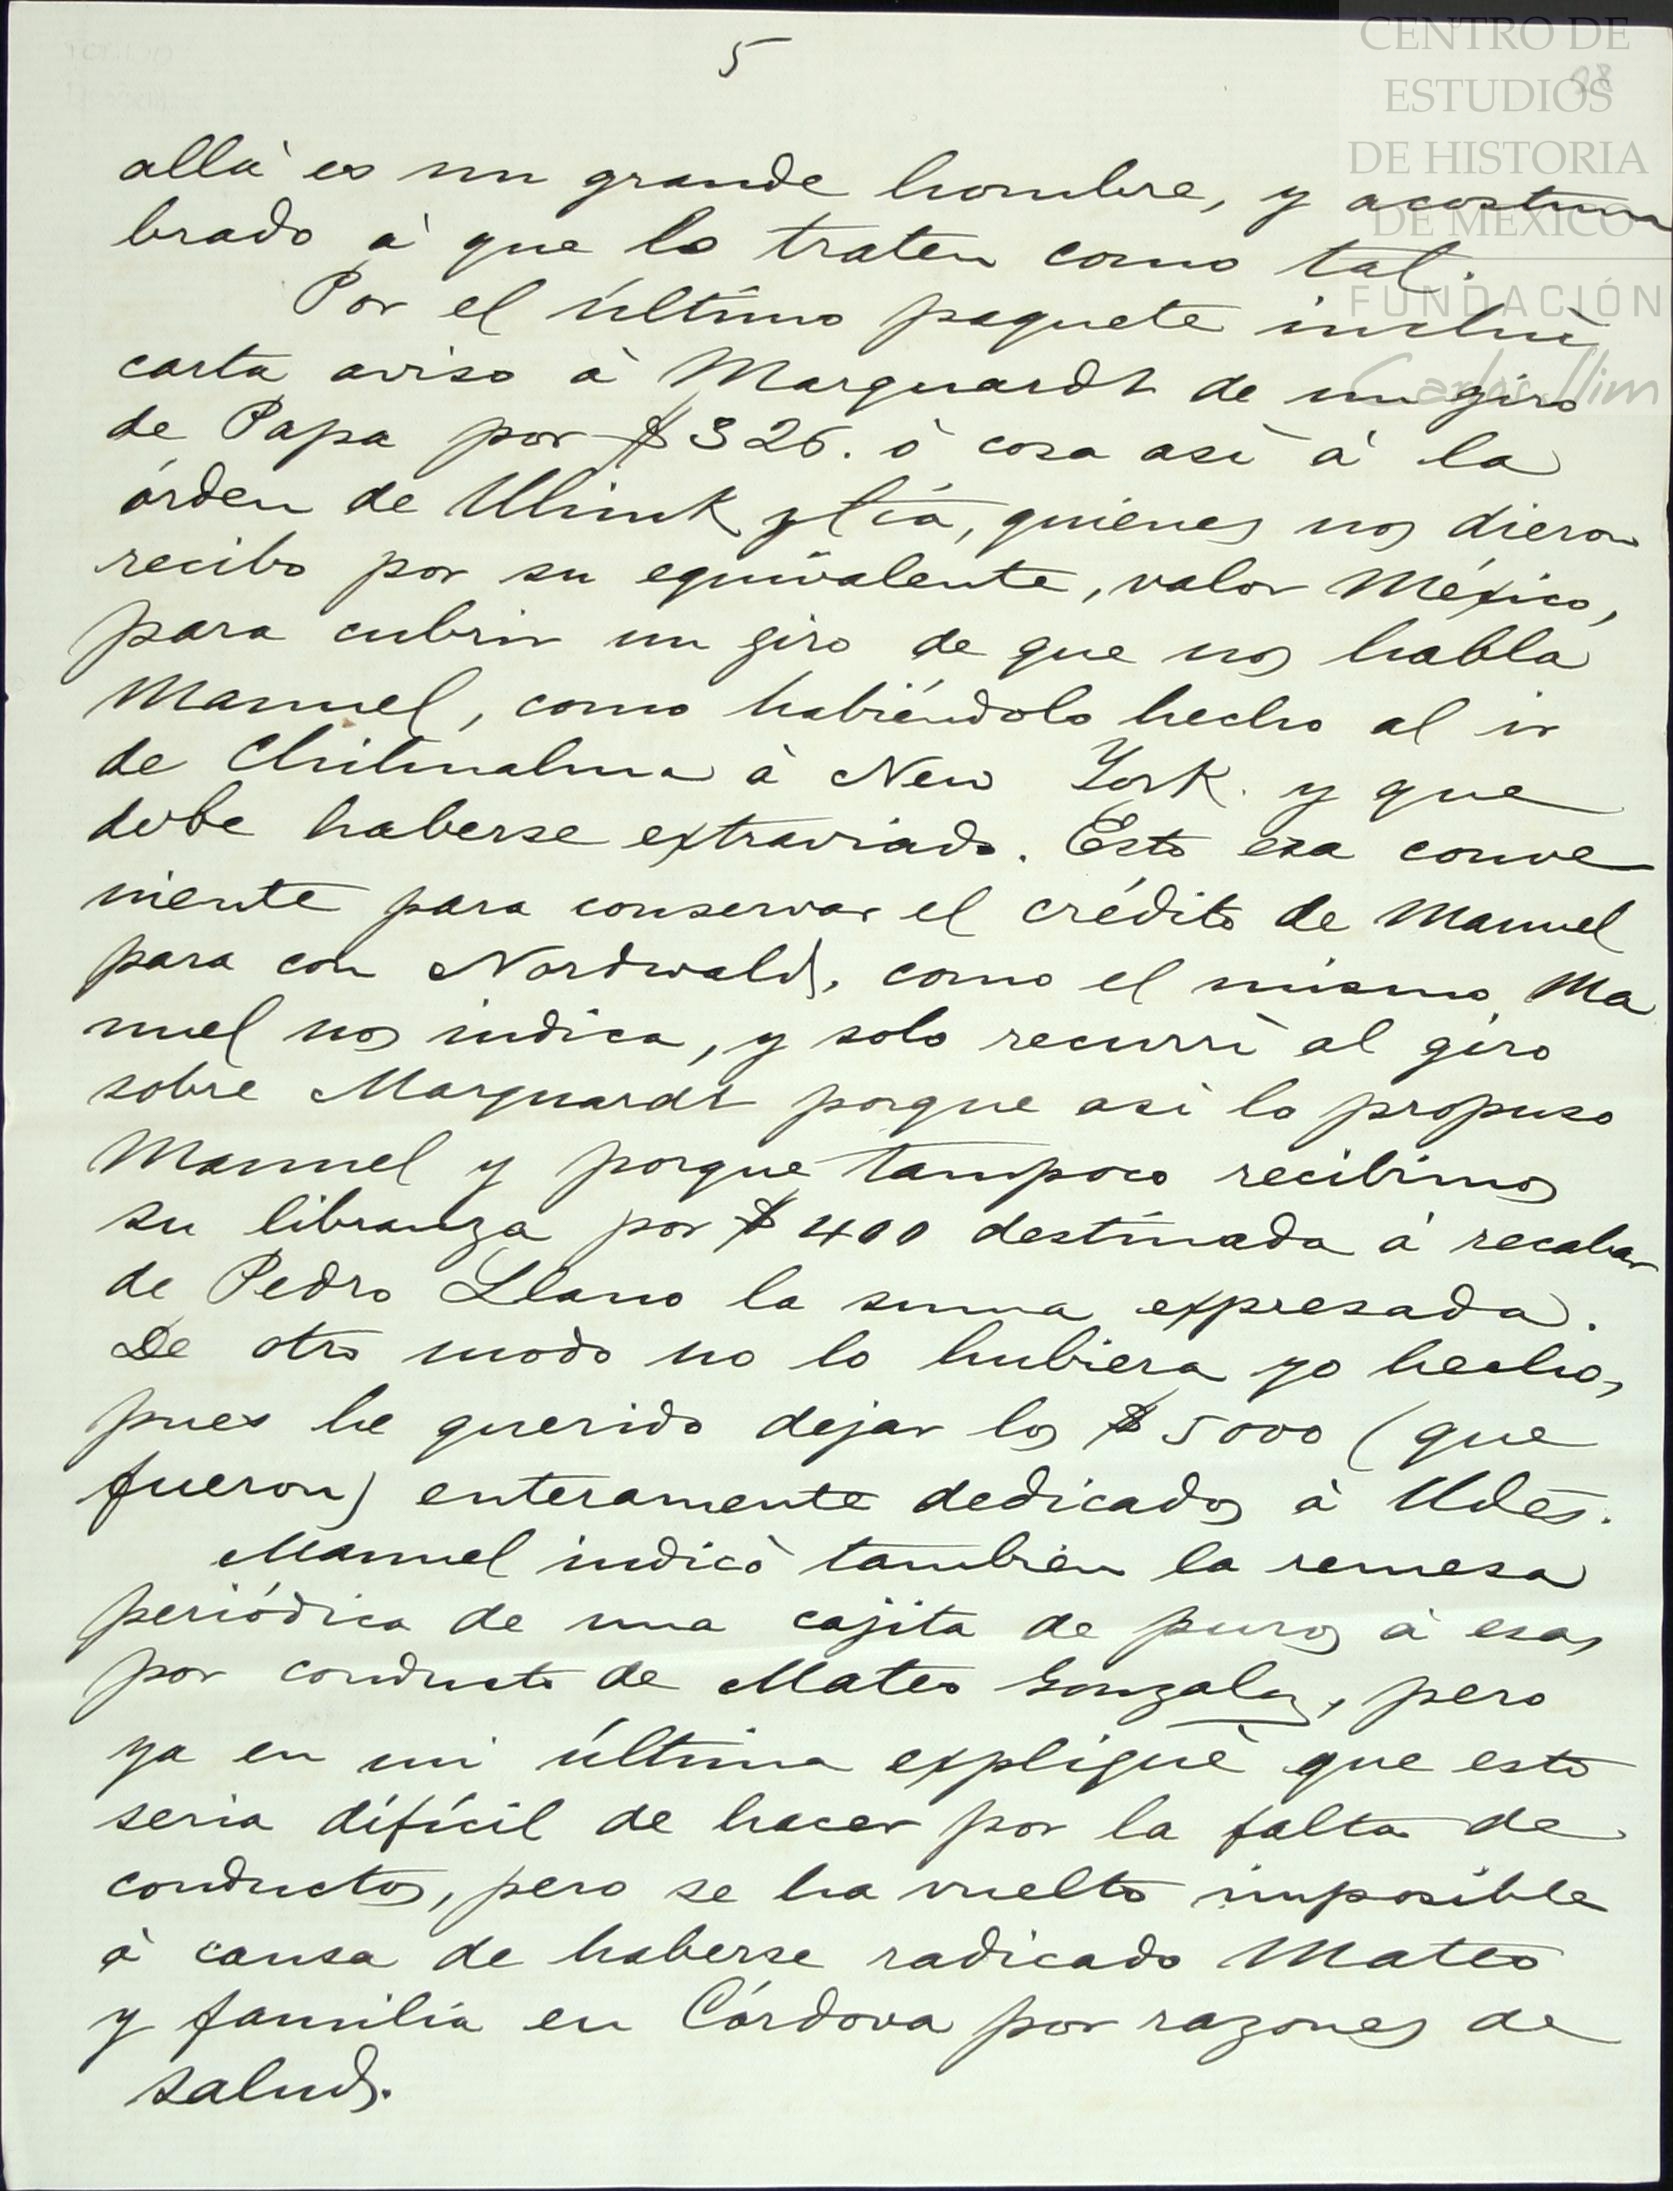 5
CENTRO DE
ESTUDIOS
DE HISTORIA
DE MÉXICO
FUNDACIÓN
Carlos Slim
allá es un grande hombre, y acostum
brado á que lo traten como tal.
Por el último paquete incluí
carta aviso á Marquardt de un giro
de Papa por $326. ó cosa así á la
órden de Ulink y Cía, quienes nos dieron
recibo por su equivalente, valor México,
para cubrir un giro de que nos habla
Manuel, como habiéndolo hecho al ir
de á New York. y que
debe haberse extraviado. Esto era conve
niente para conservar el crédito de Manuel
para con Nordwald, como el mismo Ma
nuel nos indica, y solo recurrí al giro
sobre Marquardt porque así lo propuso
Manuel y porque tampoco recibimos
su libranza por $400 destinada á recabar
de Pedro Llano la suma expresada.
De otro modo no lo hubiera yo hecho,
pues he querido dejar los $5000 (que
fueron) enteramente dedicados á Udes.
Manuel indicó tambien la remesa
periódica de una cajita de puros á esa,
por conducto de Mateo Gonzalez, pero
ya en mi última expliqué que esto
seria difícil de hacer por la falta de
conductos, pero se ha vuelto imposible
á causa de haberse radicado Mateo
y familia en Córdova por razones de
salud.